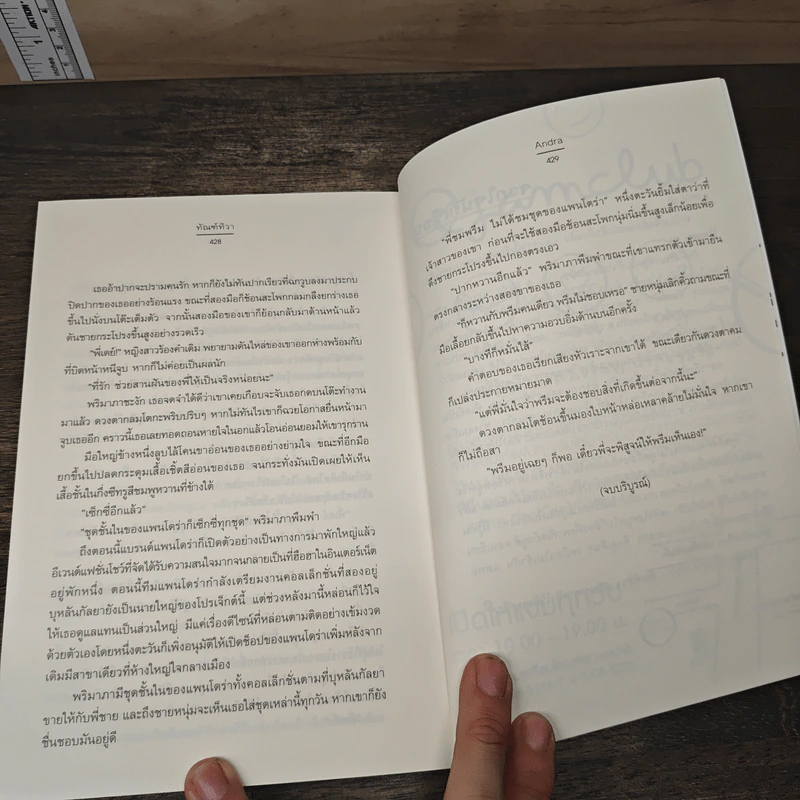 ทัณฑ์ทิวา
428
เธออ้าปากจะปรามคนรัก หากก็ยังไม่ทันปากเรียวที่ฉกวูบลงมาประกบ
ปิดปากของเธออย่างร้อนแรง ขณะที่สองมือก็ช้อนสะโพกกลมกลึงยกร่างเธอ
ขึ้นไปนั่งบนโต๊ะเต็มตัว จากนั้นสองมือของเขาก็ย้อนกลับมาด้านหน้าแล้ว
ดันชายกระโปรงขึ้นสูงอย่างรวดเร็ว
"พี่เดย์!" หญิงสาวร้องคำเดิม พยายามดันไหล่ของเขาออกห่างพร้อมกับ
ที่บิดหน้าหนีจูบ หากก็ไม่ค่อยเป็นผลนัก
"ที่รัก ช่วยสานฝันของพี่ให้เป็นจริงหน่อยนะ"
พริมาภาชะงัก เธอจดจำได้ดีว่าเขาเคยเกือบจะจับเธอกดบนโต๊ะทำงาน
มาแล้ว ดวงตากลมโตกะพริบปริบๆ หากไม่ทันไรเขาก็ฉวยโอกาสยื่นหน้ามา
จูบเธออีก คราวนี้เธอเลยทอดถอนหายใจในอกแล้วโอนอ่อนยอมให้เขารุกราน
มือใหญ่ข้างหนึ่งลูบไล้โคนขาอ่อนของเธออย่างย่ามใจ ขณะที่อีกมือ
ยกขึ้นไปปลดกระดุมเสื้อเชิ้ตสีอ่อนของเธอ จนกระทั่งมันเปิดเผยให้เห็น
เสื้อชั้นในกึ่งซีทรูสีชมพูหวานที่ข้างใต้
"เซ็กซี่อีกแล้ว"
"ชุดชั้นในของแพนโดร่าก็เซ็กซี่ทุกชุด" พริมาภาพึมพำ
ถึงตอนนี้แบรนด์แพนโดร่าก็เปิดตัวอย่างเป็นทางการมาพักใหญ่แล้ว
อีเวนต์แฟชั่นโชว์ที่จัดได้รับความสนใจมากจนกลายเป็นที่ฮือฮาในอินเตอร์เน็ต
อยู่พักหนึ่ง ตอนนี้ทีมแพนโดร่ากำลังเตรียมงานคอลเล็กชั่นที่สองอยู่
บุหลันกัลยายังเป็นนายใหญ่ของโปรเจ็กต์นี้ แต่ช่วงหลังมานี้หล่อนก็ไว้ใจ
ให้เธอดูแลแทนเป็นส่วนใหญ่ มีแค่เรื่องดีไซน์ที่หล่อนตามติดอย่างเข้มงวด
ด้วยตัวเองโดยหนึ่งตะวันก็เพิ่งอนุมัติให้เปิดช็อปของแพนโดร่าเพิ่มหลังจาก
เดิมมีสาขาเดียวที่ห้างใหญ่ใจกลางเมือง
พริมาภามีชุดชั้นในของแพนโดร่าทั้งคอลเล็กชั่นตามที่บุหลันกัลยา
ขายให้กับพี่ชาย และถึงชายหนุ่มจะเห็นเธอใส่ชุดเหล่านี้ทุกวัน หากเขาก็ยัง
ชื่นชอบมันอยู่ดี
Andra
429
"พี่ชมพรีม ไม่ได้ชมชุดของแพนโดร่า" หนึ่งตะวันยิ้มใส่ตาว่าที่
เจ้าสาวของเขา ก่อนที่จะใช้สองมือช้อนสะโพกนุ่มนิ่มขึ้นสูงเล็กน้อยเพื่อ
ดึงชายกระโปรงขึ้นไปกองตรงเอว
"ปากหวานอีกแล้ว" พริมาภาพึมพำขณะที่เขาแทรกตัวเข้ามายืน
ตรงกลางระหว่างสองขาของเธอ
"ก็หวานกับพรีมคนเดียว พรีมไม่ชอบเหรอ" ชายหนุ่มเลิกคิ้วถามขณะที่
มือเลื้อยกลับขึ้นไปหาความอวบอิ่มด้านบนอีกครั้ง
"บางทีก็หมั่นไส้"
คำตอบของเธอเรียกเสียงหัวเราะจากเขาได้ ขณะเดียวกันดวงตาคม
ก็เปล่งประกายหมายมาด
"แต่พี่มั่นใจว่าพรีมจะต้องชอบสิ่งที่เกิดขึ้นต่อจากนี้นะ"
ดวงตากลมโตช้อนขึ้นมองใบหน้าหล่อเหลาคล้ายไม่มั่นใจ หากเขา
ก็ไม่ถือสา
"พรีมอยู่เฉยๆ ก็พอ เดี๋ยวพี่จะพิสูจน์ให้พรีมเห็นเอง!"
(จบบริบูรณ์)